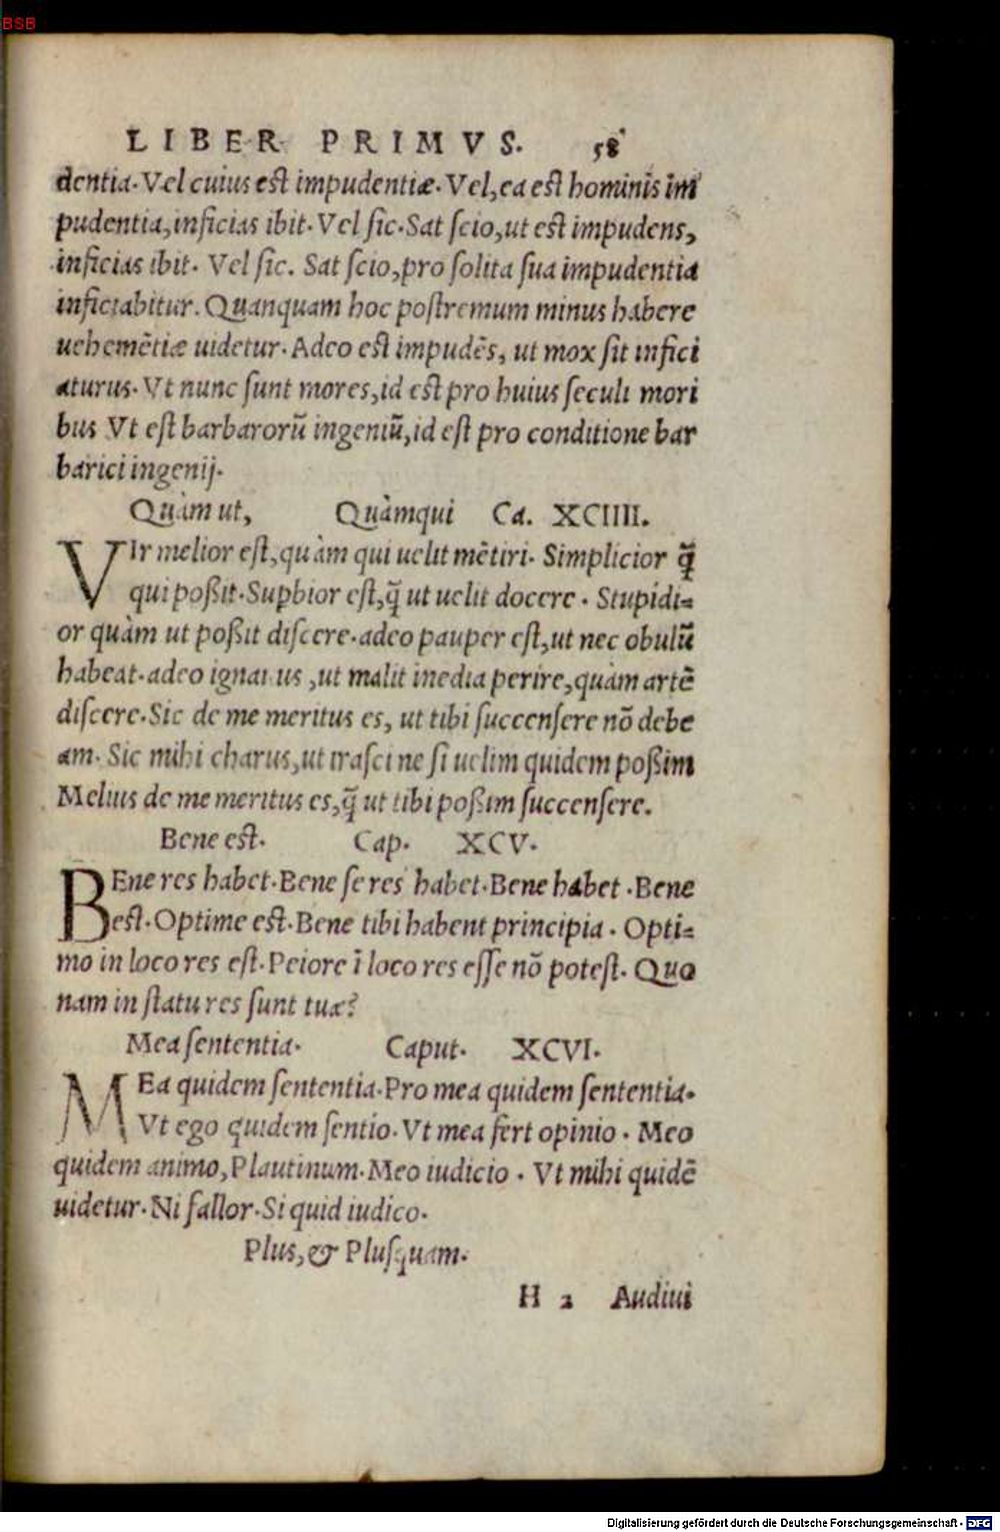 BSB
LIBER PRIMVS. 58
dentia. Vel cuius est impudentiæ. Vel, ea est hominis im
pudentia, inficias ibit. Vel sic. Sat scio, ut est impudens,
inficias ibit. Vel sic. Sat scio, pro solita sua impudentia
inficiabitur. Quanquam hoc postremum minus habere
uehemẽtiæ uidetur. Adeo est impudẽs, ut mox sit infici
aturus. Vt nunc sunt mores, id est pro huius seculi mori
bus Vt est barbarorũ ingeniũ, id est pro conditione bar
barici ingenij.
Quàm ut, Quàmqui Ca. XCIIII.
VIr melior est, quàm qui uelit mẽtiri. Simplicior q̃
qui poßit. Supbior est, q̃ ut uelit docere. Stupidi=
or quàm ut poßit discere. adeo pauper est, ut nec obulũ
habeat. adeo ignauus, ut malit inedia perire, quàm artẽ
discere. Sic de me meritus es, ut tibi succensere nõ debe
am. Sic mihi charus, ut irasci ne si uelim quidem poßim
Melius de me meritus es, q̃ ut tibi poßim succensere.
Bene est. Cap. XCV.
BEne res habet. Bene se res habet. Bene habet. Bene
est. Optime est. Bene tibi habent principia. Opti=
mo in loco res est. Peiore ĩ loco res esse nõ potest. Quo
nam in statu res sunt tuæ?
Mea sententia. Caput. XCVI.
MEa quidem sententia. Pro mea quidem sententia.
Vt ego quidem sentio. Vt mea fert opinio. Meo
quidem animo, Plautinum. Meo iudicio. Vt mihi quidẽ
uidetur. Ni fallor. Si quid iudico.
Plus, & Plusquam.
H 2 Audiui
Digitalisierung gefördert durch die Deutsche Forschungsgemeinschaft - DFG